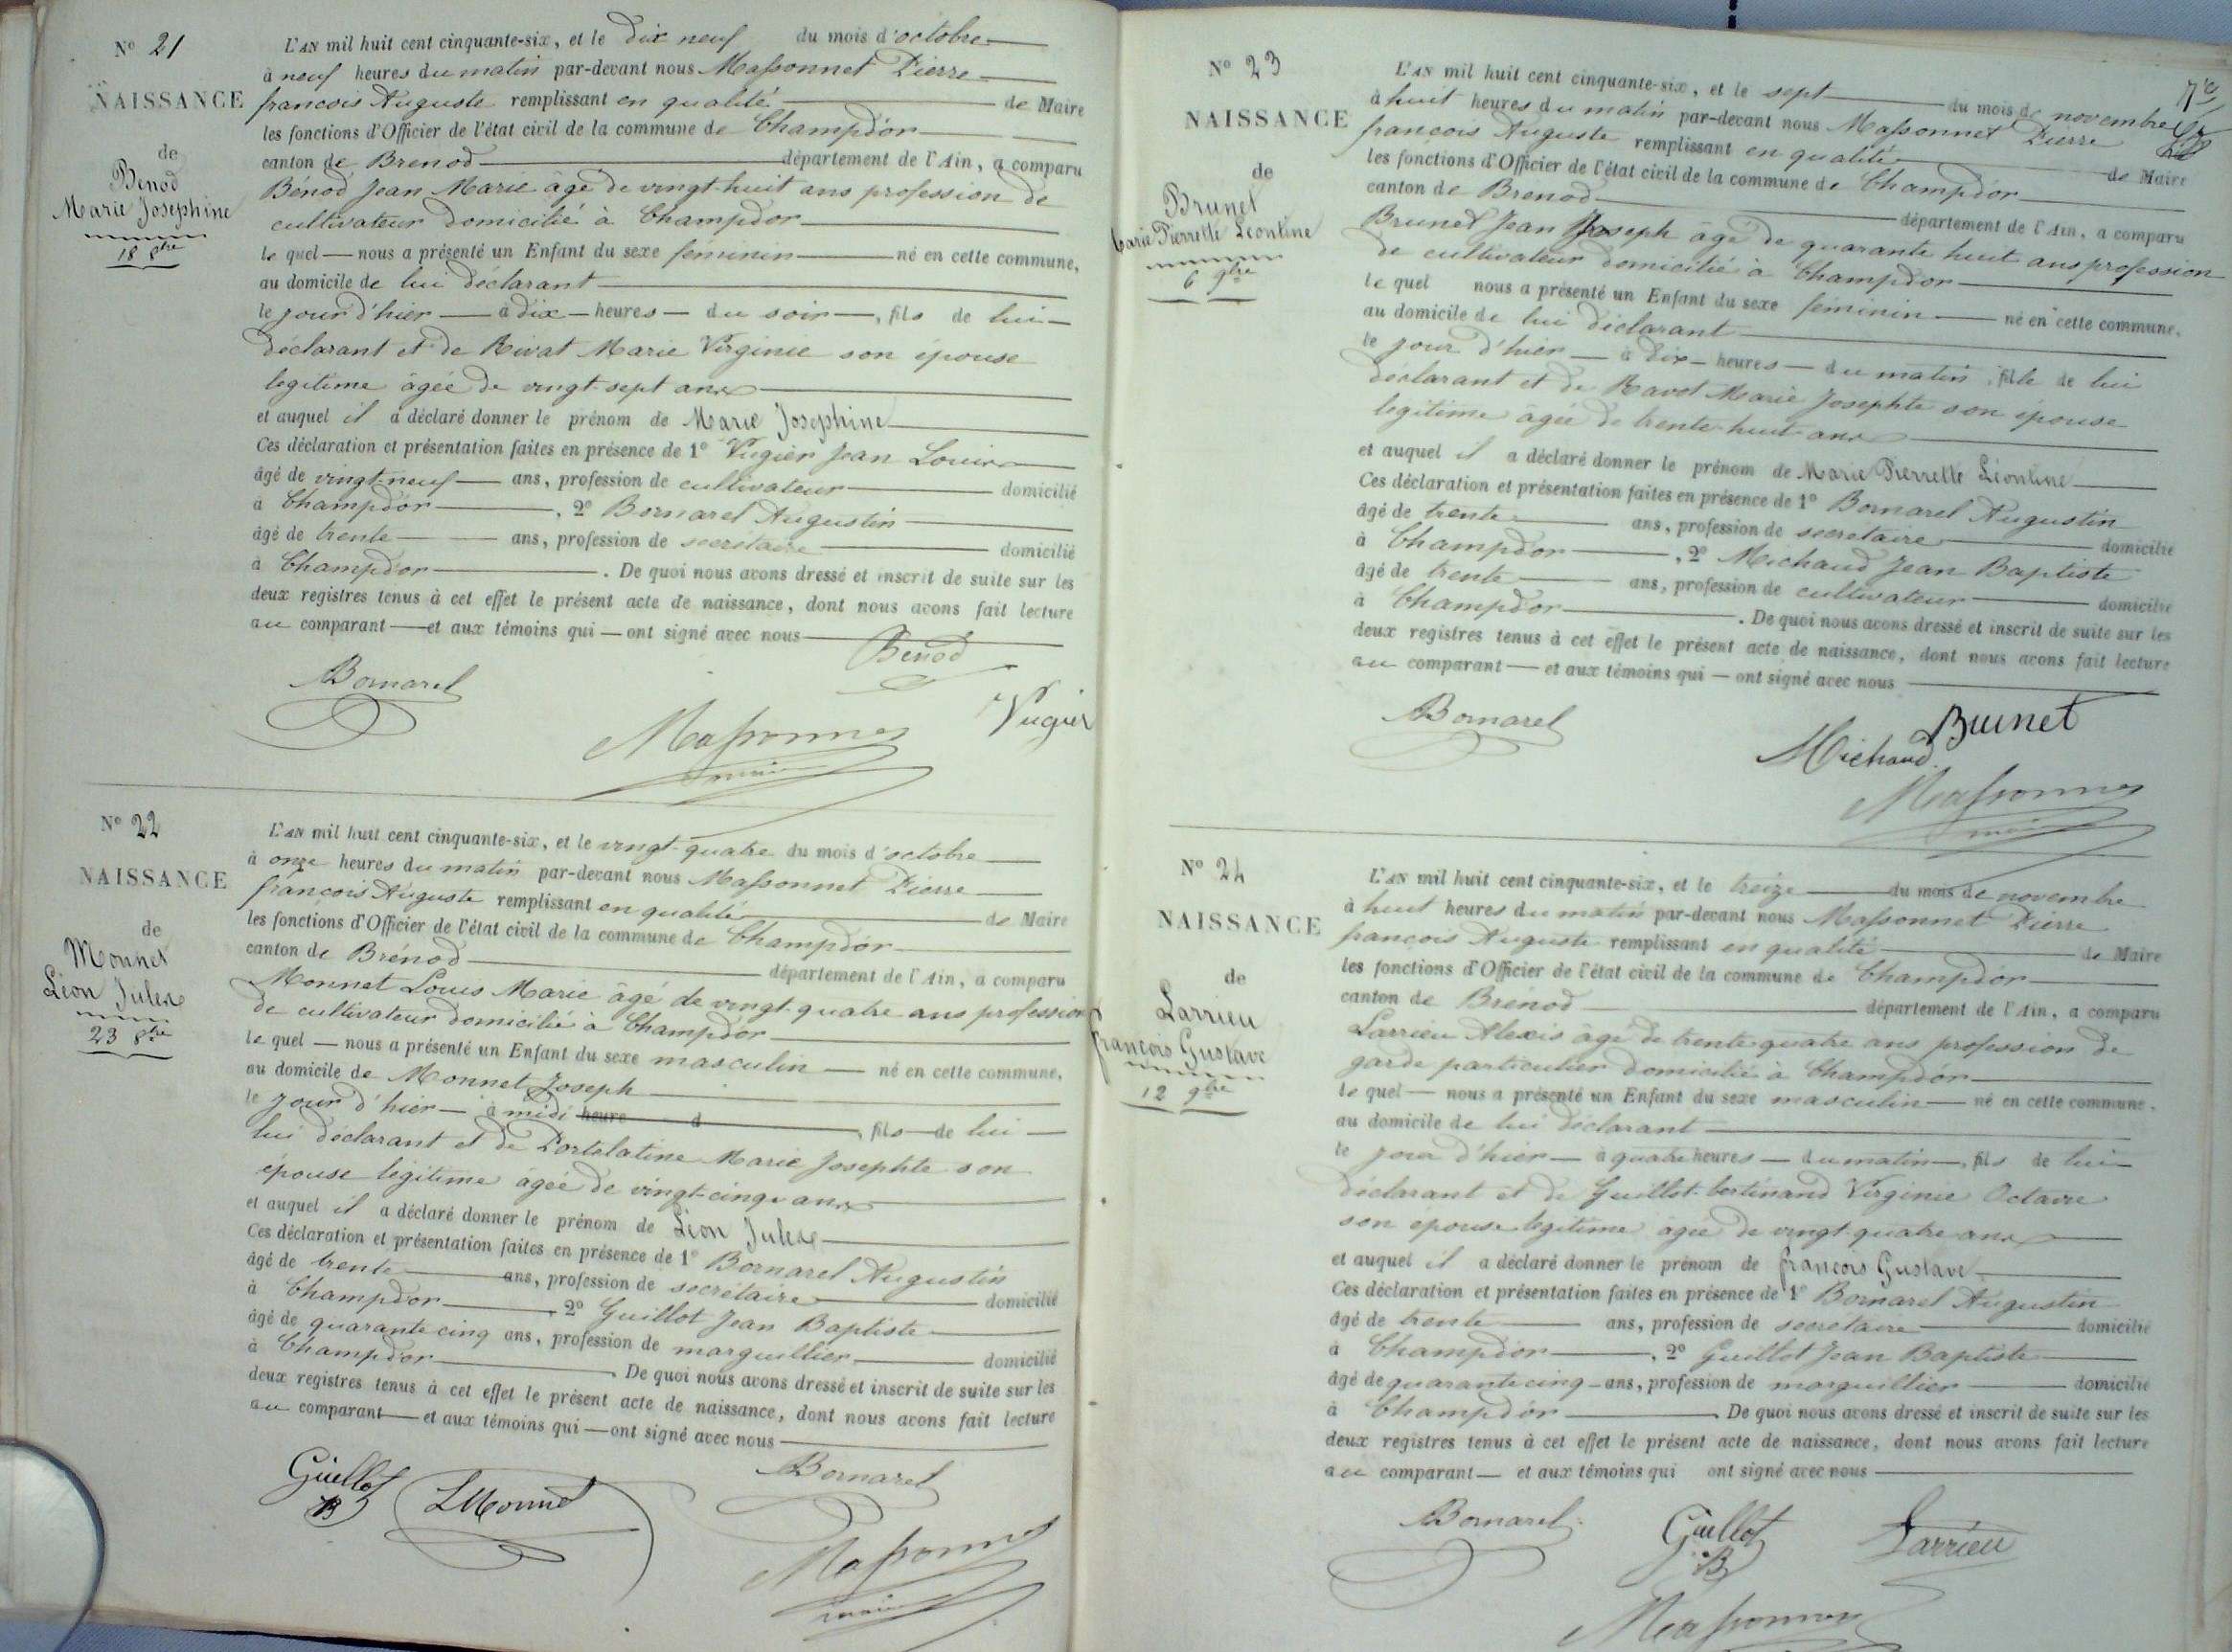 N° 21
NAISSANCE
de
Benod
Marie Josephine
18 8bre
L'AN mil huit cent cinquante-six, et le dix neuf du mois d'octobre
à neuf heures du matin par-devant nous Massonnet Pierre
francois Auguste remplissant en qualité de Maire
les fonctions d'Officier de l'état civil de la commune de Champdor
canton de Brenod département de l'Ain, a comparu
Bénod Jean Marie âgé de vingt-huit ans profession de
cultivateur domicilié à Champdor
le quel nous a présenté un Enfant du sexe féminin né en cette commune,
au domicile de lui déclarant
le jour d'hier à dix heures du soir, fils de lui
déclarant et de Rivat Marie Virginie son épouse
legitime âgée de vingt-sept ans
et auquel il a déclaré donner le prénom de Marie Josephine
Ces déclaration et présentation faites en présence de 1° Vugier Jean Louis
âgé de vingt-neuf ans, profession de cultivateur domicilié
à Champdor, 2° Bornarel Augustin
âgé de trente ans, profession de secrétaire domicilié
à Champdor. De quoi nous avons dressé et inscrit de suite sur les
deux registres tenus à cet effet le présent acte de naissance, dont nous avons fait lecture
au comparant et aux témoins qui ont signé avec nous
Benod
Bornarel
Vugier
Massonnet
maire
N° 22
NAISSANCE
de
Monnet
Léon Jules
23 8bre
L'AN mil huit cent cinquante-six, et le vingt-quatre du mois d'octobre
à onze heures du matin par-devant nous Massonnet Pierre
françois Auguste remplissant en qualité de Maire
les fonctions d'Officier de l'état civil de la commune de Champdor
canton de Brénod département de l'Ain, a comparu
Monnet Louis Marie âgé de vingt-quatre ans profession
de cultivateur domicilié à Champdor
le quel nous a présenté un Enfant du sexe masculin né en cette commune,
au domicile de Monnet Joseph
le jour d'hier à midi heure d, fils de lui
lui déclarant et de Portelatine Marie Josephte son
épouse legitime âgée de vingt-cinq ans
et auquel il a déclaré donner le prénom de Léon Jules
Ces déclaration et présentation faites en présence de 1° Bornarel Augustin
âgé de trente ans, profession de secrétaire domicilié
à Champdor, 2° Guillot Jean Baptiste
âgé de quarante cinq ans, profession de marguillier domicilié
à Champdor. De quoi nous avons dressé et inscrit de suite sur les
deux registres tenus à cet effet le présent acte de naissance, dont nous avons fait lecture
au comparant et aux témoins qui ont signé avec nous
Guillot
B
LMonnet
Bornarel
Massonnet
maire
N° 23
NAISSANCE
de
Brunet
Marie Pierrette Léontine
6 9bre
L'AN mil huit cent cinquante-six, et le sept du mois de novembre
à huit heures du matin par-devant nous Massonnet Pierre
francois Auguste remplissant en qualité de Maire
les fonctions d'Officier de l'état civil de la commune de Champdor
canton de Brenod département de l'Ain, a comparu
Brunet Jean Joseph âgé de quarante huit ans profession
de cultivateur domicilié à Champdor
le quel nous a présenté un Enfant du sexe féminin né en cette commune,
au domicile de lui déclarant
le jour d'hier à dix heures du matin, fille de lui
déclarant et de Ravot Marie Josephte son épouse
legitime âgée de trente-huit ans
et auquel il a déclaré donner le prénom de Marie Pierrette Léontine
Ces déclaration et présentation faites en présence de 1° Bornarel Augustin
âgé de trente ans, profession de secrétaire domicilié
à Champdor, 2° Michaud Jean Baptiste
âgé de trente ans, profession de cultivateur domicilié
à Champdor. De quoi nous avons dressé et inscrit de suite sur les
deux registres tenus à cet effet le présent acte de naissance, dont nous avons fait lecture
au comparant et aux témoins qui ont signé avec nous
Bornarel
Brunet
Michaud
Massonnet
maire
N° 24
NAISSANCE
de
Larrieu
francois Gustave
12 9bre
L'AN mil huit cent cinquante-six, et le treize du mois de novembre
à huit heures du matin par-devant nous Massonnet Pierre
françois Auguste remplissant en qualité de Maire
les fonctions d'Officier de l'état civil de la commune de Champdor
canton de Brénod département de l'Ain, a comparu
Larrieu Alexis âgé de trente quatre ans profession de
garde particulier domicilié à Champdor
le quel nous a présenté un Enfant du sexe masculin né en cette commune,
au domicile de lui déclarant
le jour d'hier à quatre heures du matin, fils de lui
déclarant et de Guillot-bertinand Virginie Octavie
son épouse legitime âgée de vingt quatre ans
et auquel il a déclaré donner le prénom de francois Gustave
Ces déclaration et présentation faites en présence de 1° Bornarel Augustin
âgé de trente ans, profession de secretaire domicilié
à Champdor, 2° Guillot Jean Baptiste
âgé de quarante cinq ans, profession de marguillier domicilié
à Champdor. De quoi nous avons dressé et inscrit de suite sur les
deux registres tenus à cet effet le présent acte de naissance, dont nous avons fait lecture
au comparant et aux témoins qui ont signé avec nous
Bornarel
Guillot
B
Larrieu
Massonnet